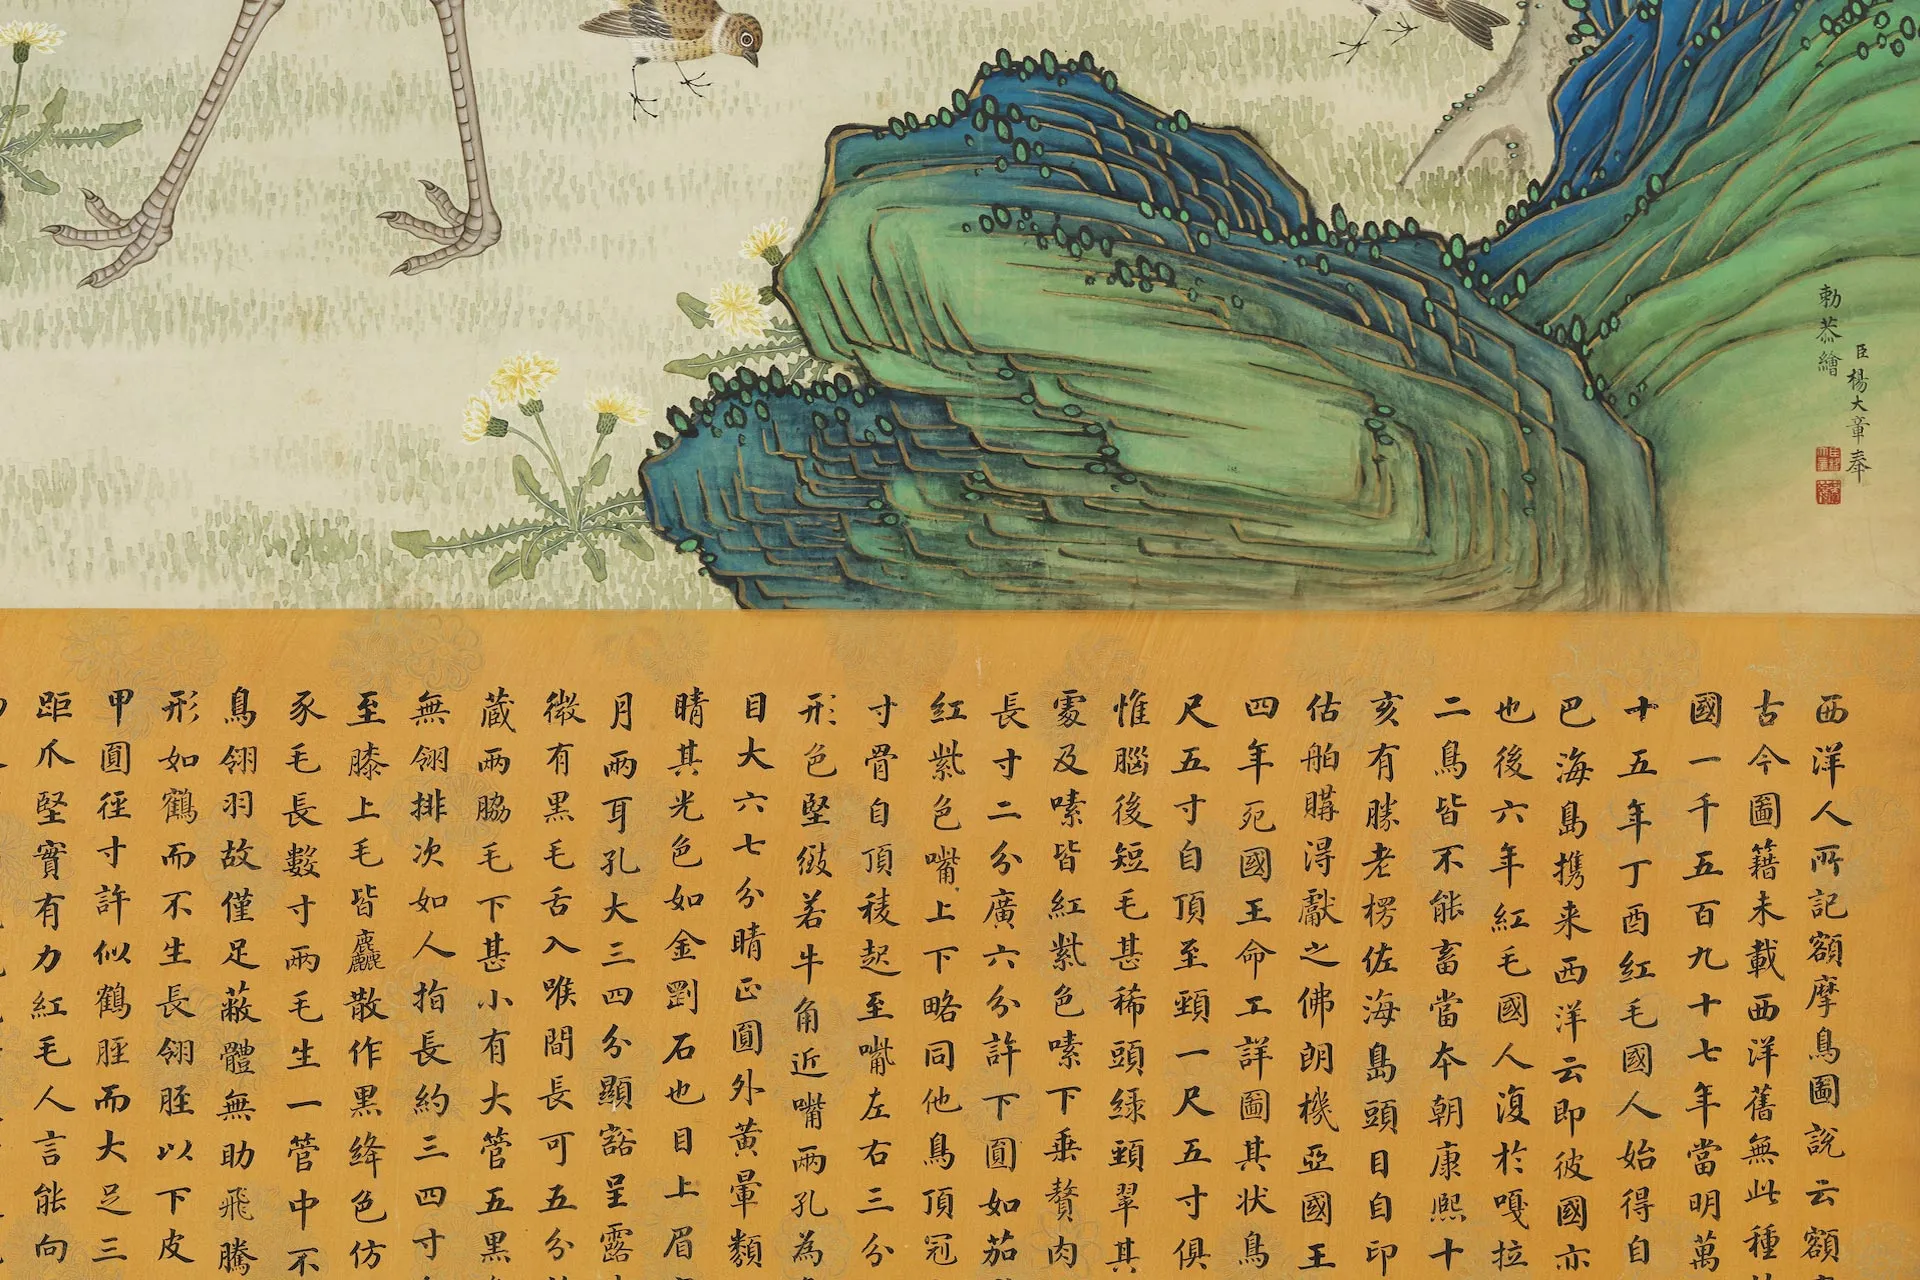 勅恭繪
臣楊大章奉
西洋人所記額摩鳥圖說云額
古今圖籍未載西洋舊無此種
國一千五百九十七年當明萬
十五年丁酉紅毛國人始得自
巴海島携来西洋云即彼國亦
也後六年紅毛國人復於嘎拉
二鳥皆不能畜當本朝康熙十
亥有勝老楞佐海島頭目自印
估舶購得獻之佛朗機亞國王
四年死國王命工詳圖其状鳥
尺五寸自頂至頸一尺五寸俱
惟腦後短毛甚稀頭綠頸翠其
䨱及嗉皆紅紫色嗉下垂贅肉
長寸二分廣六分許下圓如茄
紅紫色嘴上下略同他鳥頂冠
寸骨自頂稜起至嘴左右三分
形色堅緻若牛角近嘴兩孔為
目大六七分睛正圓外黄暈類
睛其光色如金剛石也目上眉
月兩耳孔大三四分顯豁呈露
微有黒毛舌入喉間長可五分
蔵兩脇毛下甚小有大管五黒
無翎排次如人指長約三四寸
至膝上毛皆麤散作黒絳色仿
豕毛長數寸兩毛生一管中不
鳥翎羽故僅足蔽體無助飛騰
形如鶴而不生長翎脛以下皮
甲圓径寸許似鶴脛而大足三
距爪堅實有力紅毛人言能向